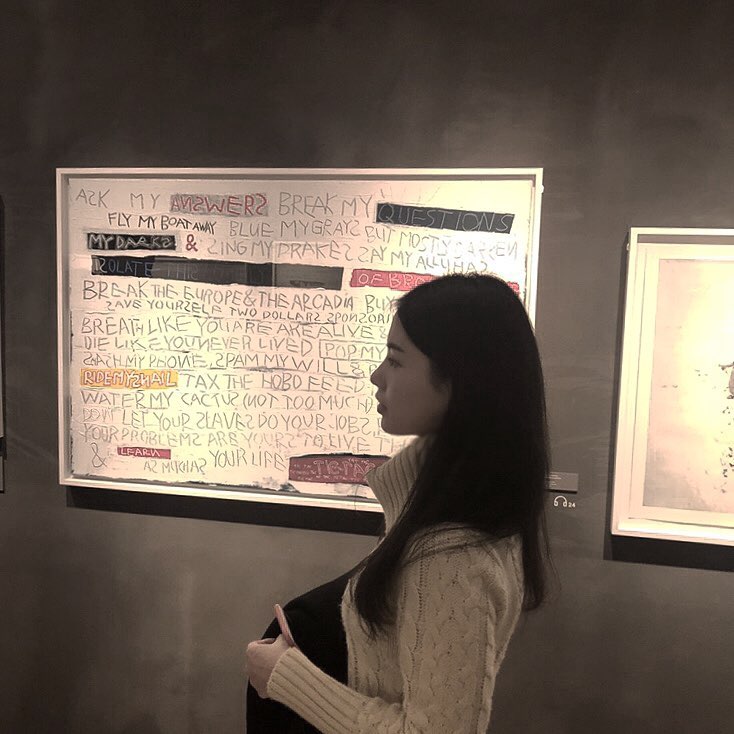 ASK MY ANSWERS BREAK MY QUESTIONS
FLY MY BOAT AWAY BLUE MY GRAYS BUT MOSTLY
MY DARKS & SING MY DRAKES SAY MY
ISOLATE THIS
OF
BREAK THE EUROPE & THE ARCADIA
SAVE YOURSELF TWO DOLLARS
BREATH LIKE YOU ARE ALIVE &
DIE LIKE YOU NEVER LIVED POP MY
MY PHONE, SPAM MY WILL &
RIDE MY SNAIL TAX THE HOBO FEED
WATER MY CACTUS (NOT TOO MUCH)
DON'T LET YOUR SLAVES DO YOUR JOBS
YOUR PROBLEMS ARE YOURS TO LIVE
& LEARN AS MUKHAS YOUR LIFE
24